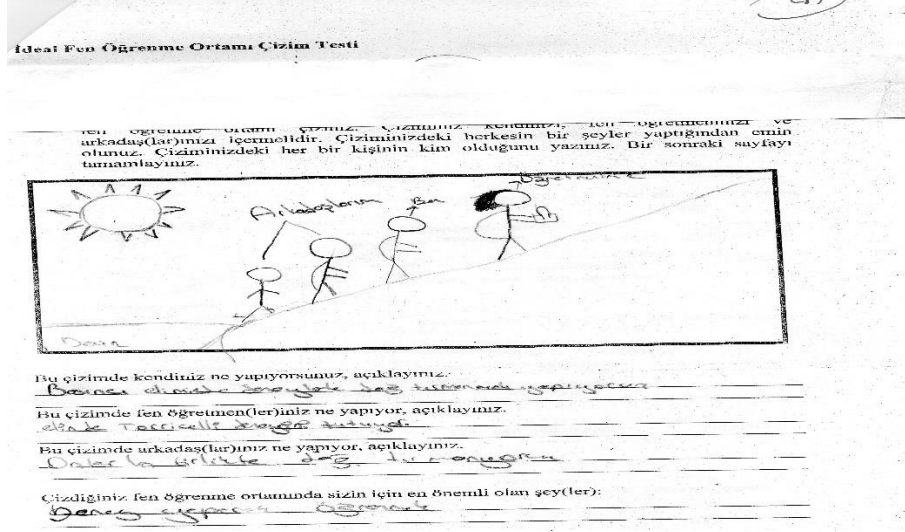 İdeal Fen Öğrenme Ortamı Çizim Testi
fen öğrenme ortamı çiziniz. Çiziminiz kendinizi, fen öğretmeninizi ve
arkadaş(lar)ınızı içermelidir. Çiziminizdeki herkesin bir şeyler yaptığından emin
olunuz. Çiziminizdeki her bir kişinin kim olduğunu yazınız. Bir sonraki sayfayı
tamamlayınız.
Öğretmenim
Arkadaşlarım Ben
Deniz
Bu çizimde kendiniz ne yapıyorsunuz, açıklayınız.
dağ
Bu çizimde fen öğretmen(ler)iniz ne yapıyor, açıklayınız.
elinde Torricelli deneyini tutuyor
Bu çizimde arkadaş(lar)ınız ne yapıyor, açıklayınız.
birlikte dağ
Çizdiğiniz fen öğrenme ortamında sizin için en önemli olan şey(ler):
Deney yaparak öğrenmek